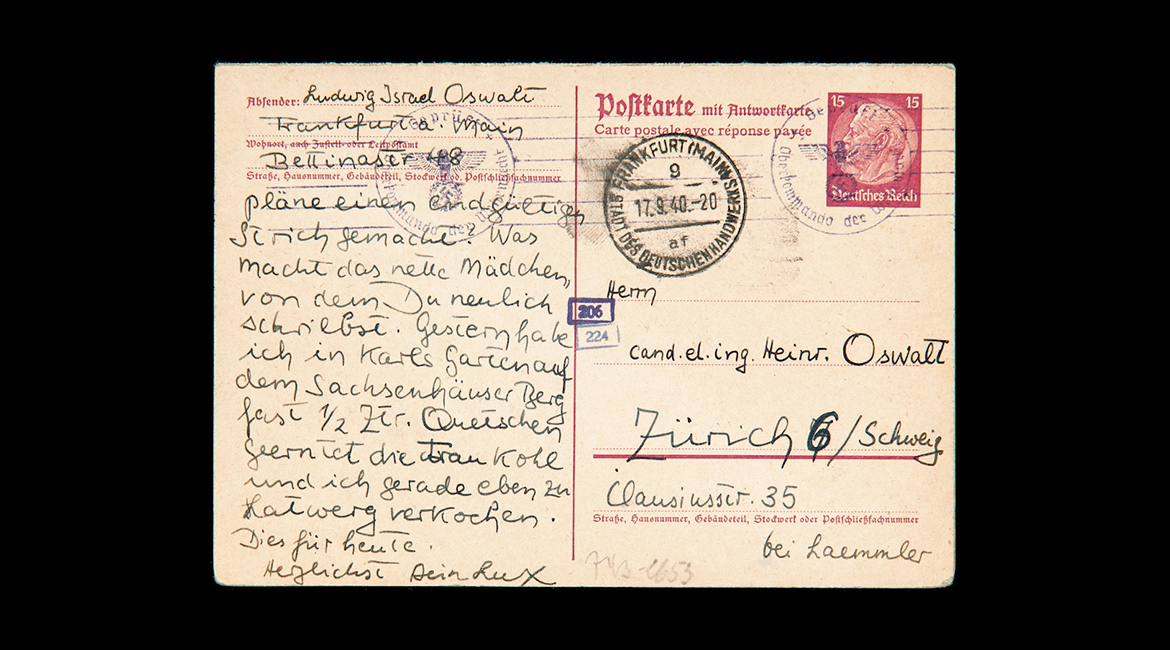 Absender: Ludwig Israel Oswalt
Frankfurt a. Main
Wohnort, auch Zustell- oder Leitpostamt
Bettinastr. 48
Straße, Hausnummer, Gebäudeteil, Stockwerk od. Postschließfachnummer
pläne einen endgültigen
Strich gemacht. Was
macht das nette Mädchen,
von dem Du neulich
schriebst. Gestern habe
ich in Karls Garten auf
dem Sachsenhäuser Berg
fast 1/2 Ztr. Quetschen
geerntet die Frau Kohl
und ich gerade eben zu
Latwerg verkochen.
Dies für heute.
Herzlichst Dein Lux
Geprüft
Oberkommando der
206
224
Postkarte mit Antwortkarte
Carte postale avec réponse payée
FRANKFURT (MAIN)
9
17.9.40.-20
af
STADT DES DEUTSCHEN HANDWERKS
15 15
Deutsches Reich
Geprüft
Oberkommando der
Herrn
cand. el. ing. Heinr. Oswalt
Zürich 6 / Schweiz
Clausiusstr. 35
Straße, Hausnummer, Gebäudeteil, Stockwerk oder Postschließfachnummer
bei Laemmler